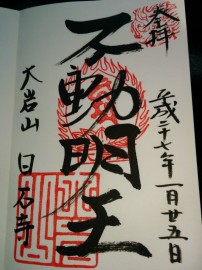 奉拝
平成二十七年一月廿五日
不動明王
大岩山 日石寺